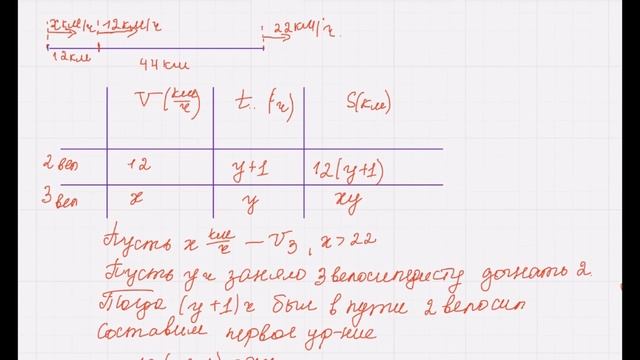 x км/ч 12 км/ч 22 км/ч.
12 км
44 км
V (км/ч) t.. (ч) S(км)
2 вел 12 y+1 12(y+1)
3 вел x y xy
Пусть x км/ч — V₃, x>22
Пусть y ч заняло 3 велосипедисту догнать 2.
Тогда (y+1) ч был в пути 2 велосип
Составим первое ур-ние